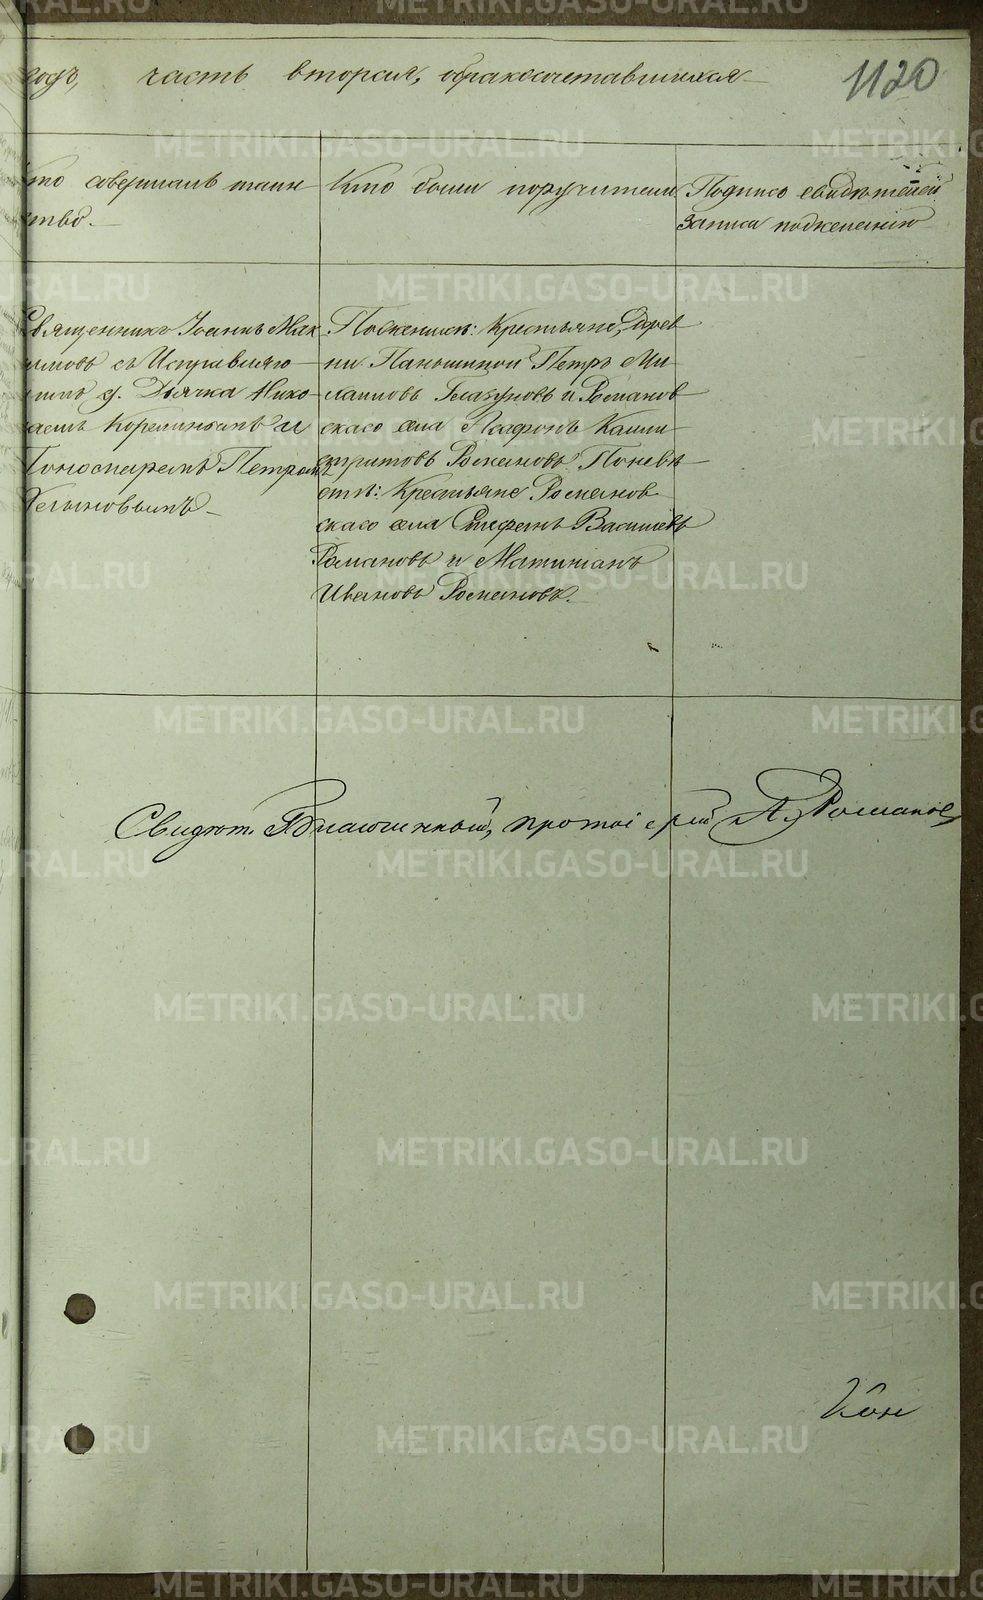 годъ, часть вторая, о бракосочетавшихся
1120
Кто совершалъ таин
ство.
Кто были поручители
Подпись свидѣтелей
записи по желанію
Священникъ Іоаннъ Мак
симовъ съ Исправляю
щимъ д. Дьячка Нико
лаемъ и
Пономаремъ Петромъ
По женихѣ: Крестьяне, дерев
ни Паньшиной Петръ Ми
хайловъ и Романов
скаго села Калли
стратовъ Романовъ. По невѣ
стѣ: Крестьяне Романов
скаго села Стефанъ Васильевъ
Романовъ и Мартиніанъ
Ивановъ Романовъ.
Свидѣт. Благочинный, протоіерей А. Романовъ
METRIKI.GASO-URAL.RU